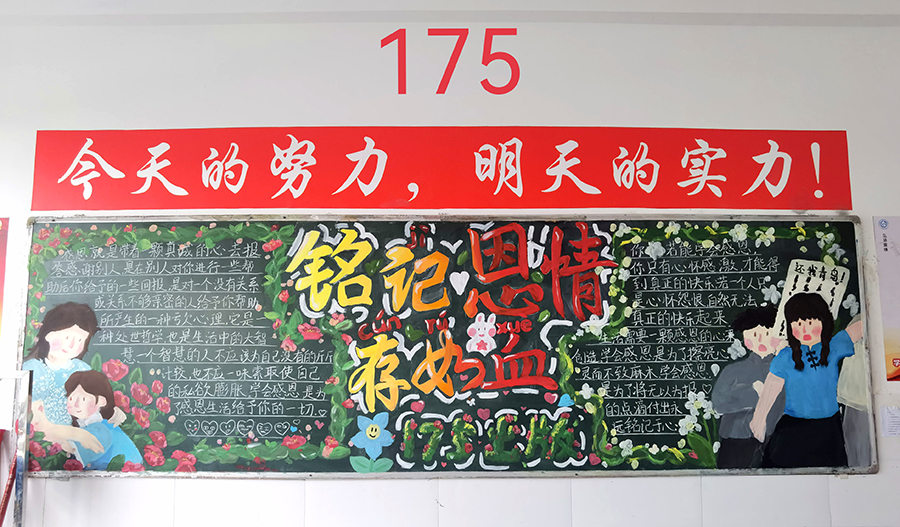 175
今天的努力，明天的实力！
铭记恩情
cún rú xuè
存如血
175出版
感恩就是带着一颗真诚的心去报
答感谢别人是在别人对你进行一些帮
助后你给予的一些回报，是对一个没有关系
或关系不够亲密的人给予你帮助
所产生的一种亏欠心理，它是
一种处世哲学也是生活中的大智
慧一个智慧的人不应该为自己没有的斤斤
计较，也不应一味索取使自己
的私欲膨胀，学会感恩，是为
了感恩生活给予你的一切
你只有心怀感激，才能得
到真正的快乐若一个人只
是心怀怨恨自然无法
真正的快乐起来
生活需要一颗感恩的心
创造，学会感恩是为了擦亮心
灵而不致麻木，学会感恩
是为了将无以为报
的点滴付出永
远铭记于心
还我青岛！